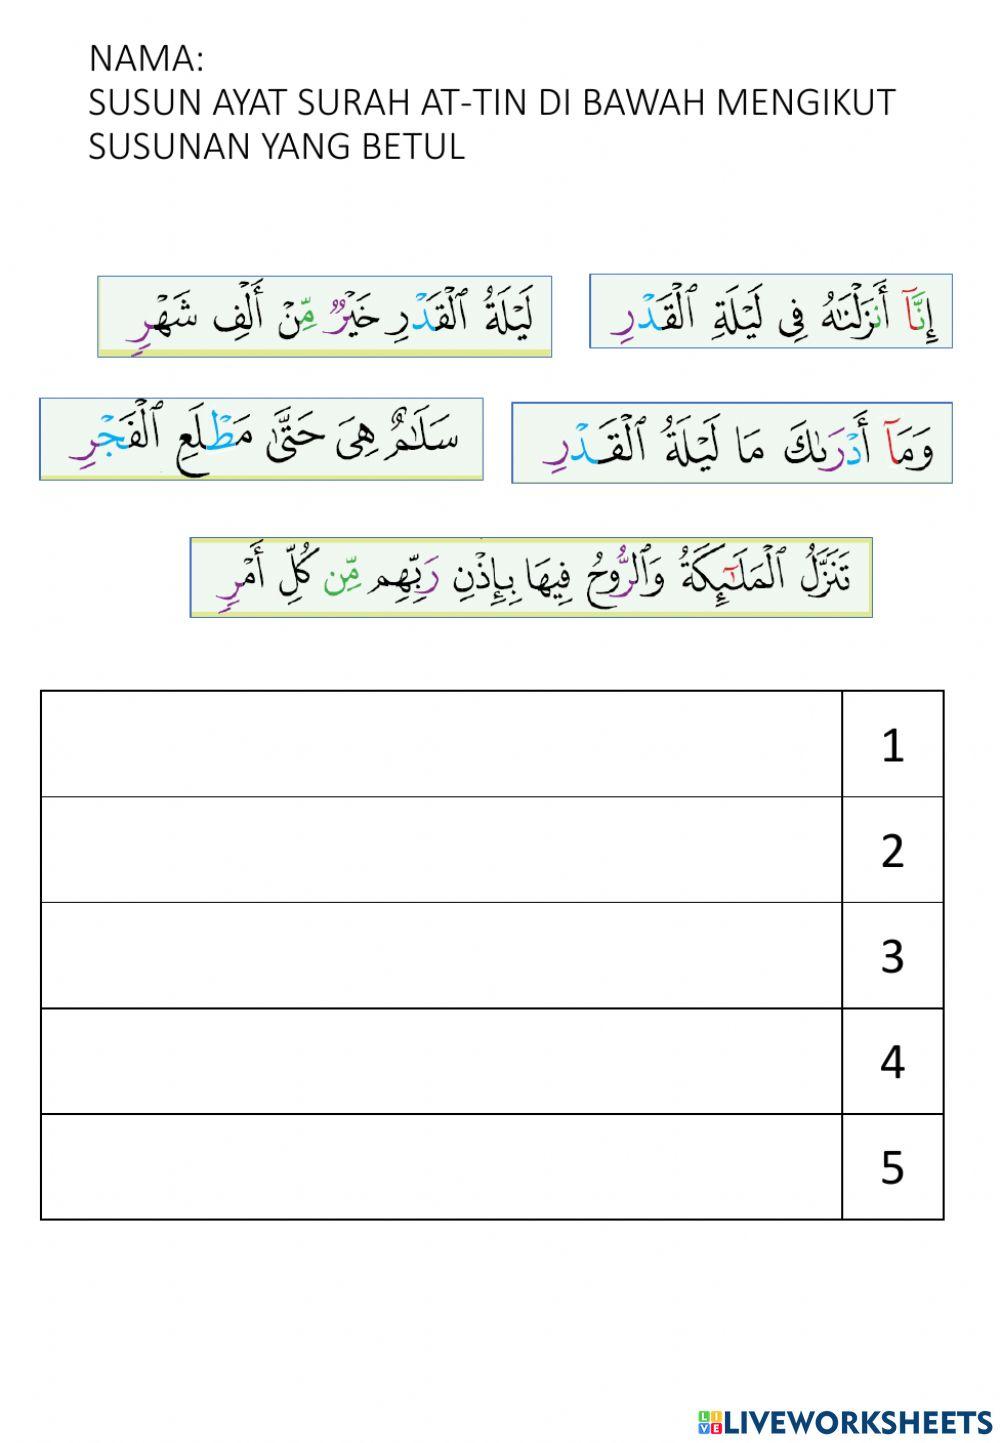 NAMA:
SUSUN AYAT SURAH AT-TIN DI BAWAH MENGIKUT
SUSUNAN YANG BETUL
إِنَّآ أَنزَلْنَٰهُ فِى لَيْلَةِ ٱلْقَدْرِ
لَيْلَةُ ٱلْقَدْرِ خَيْرٌ مِّنْ أَلْفِ شَهْرٍ
وَمَآ أَدْرَىٰكَ مَا لَيْلَةُ ٱلْقَدْرِ
سَلَٰمٌ هِىَ حَتَّىٰ مَطْلَعِ ٱلْفَجْرِ
تَنَزَّلُ ٱلْمَلَٰٓئِكَةُ وَٱلرُّوحُ فِيهَا بِإِذْنِ رَبِّهِم مِّن كُلِّ أَمْرٍ
1
2
3
4
5
LIVE LIVEWORKSHEETS